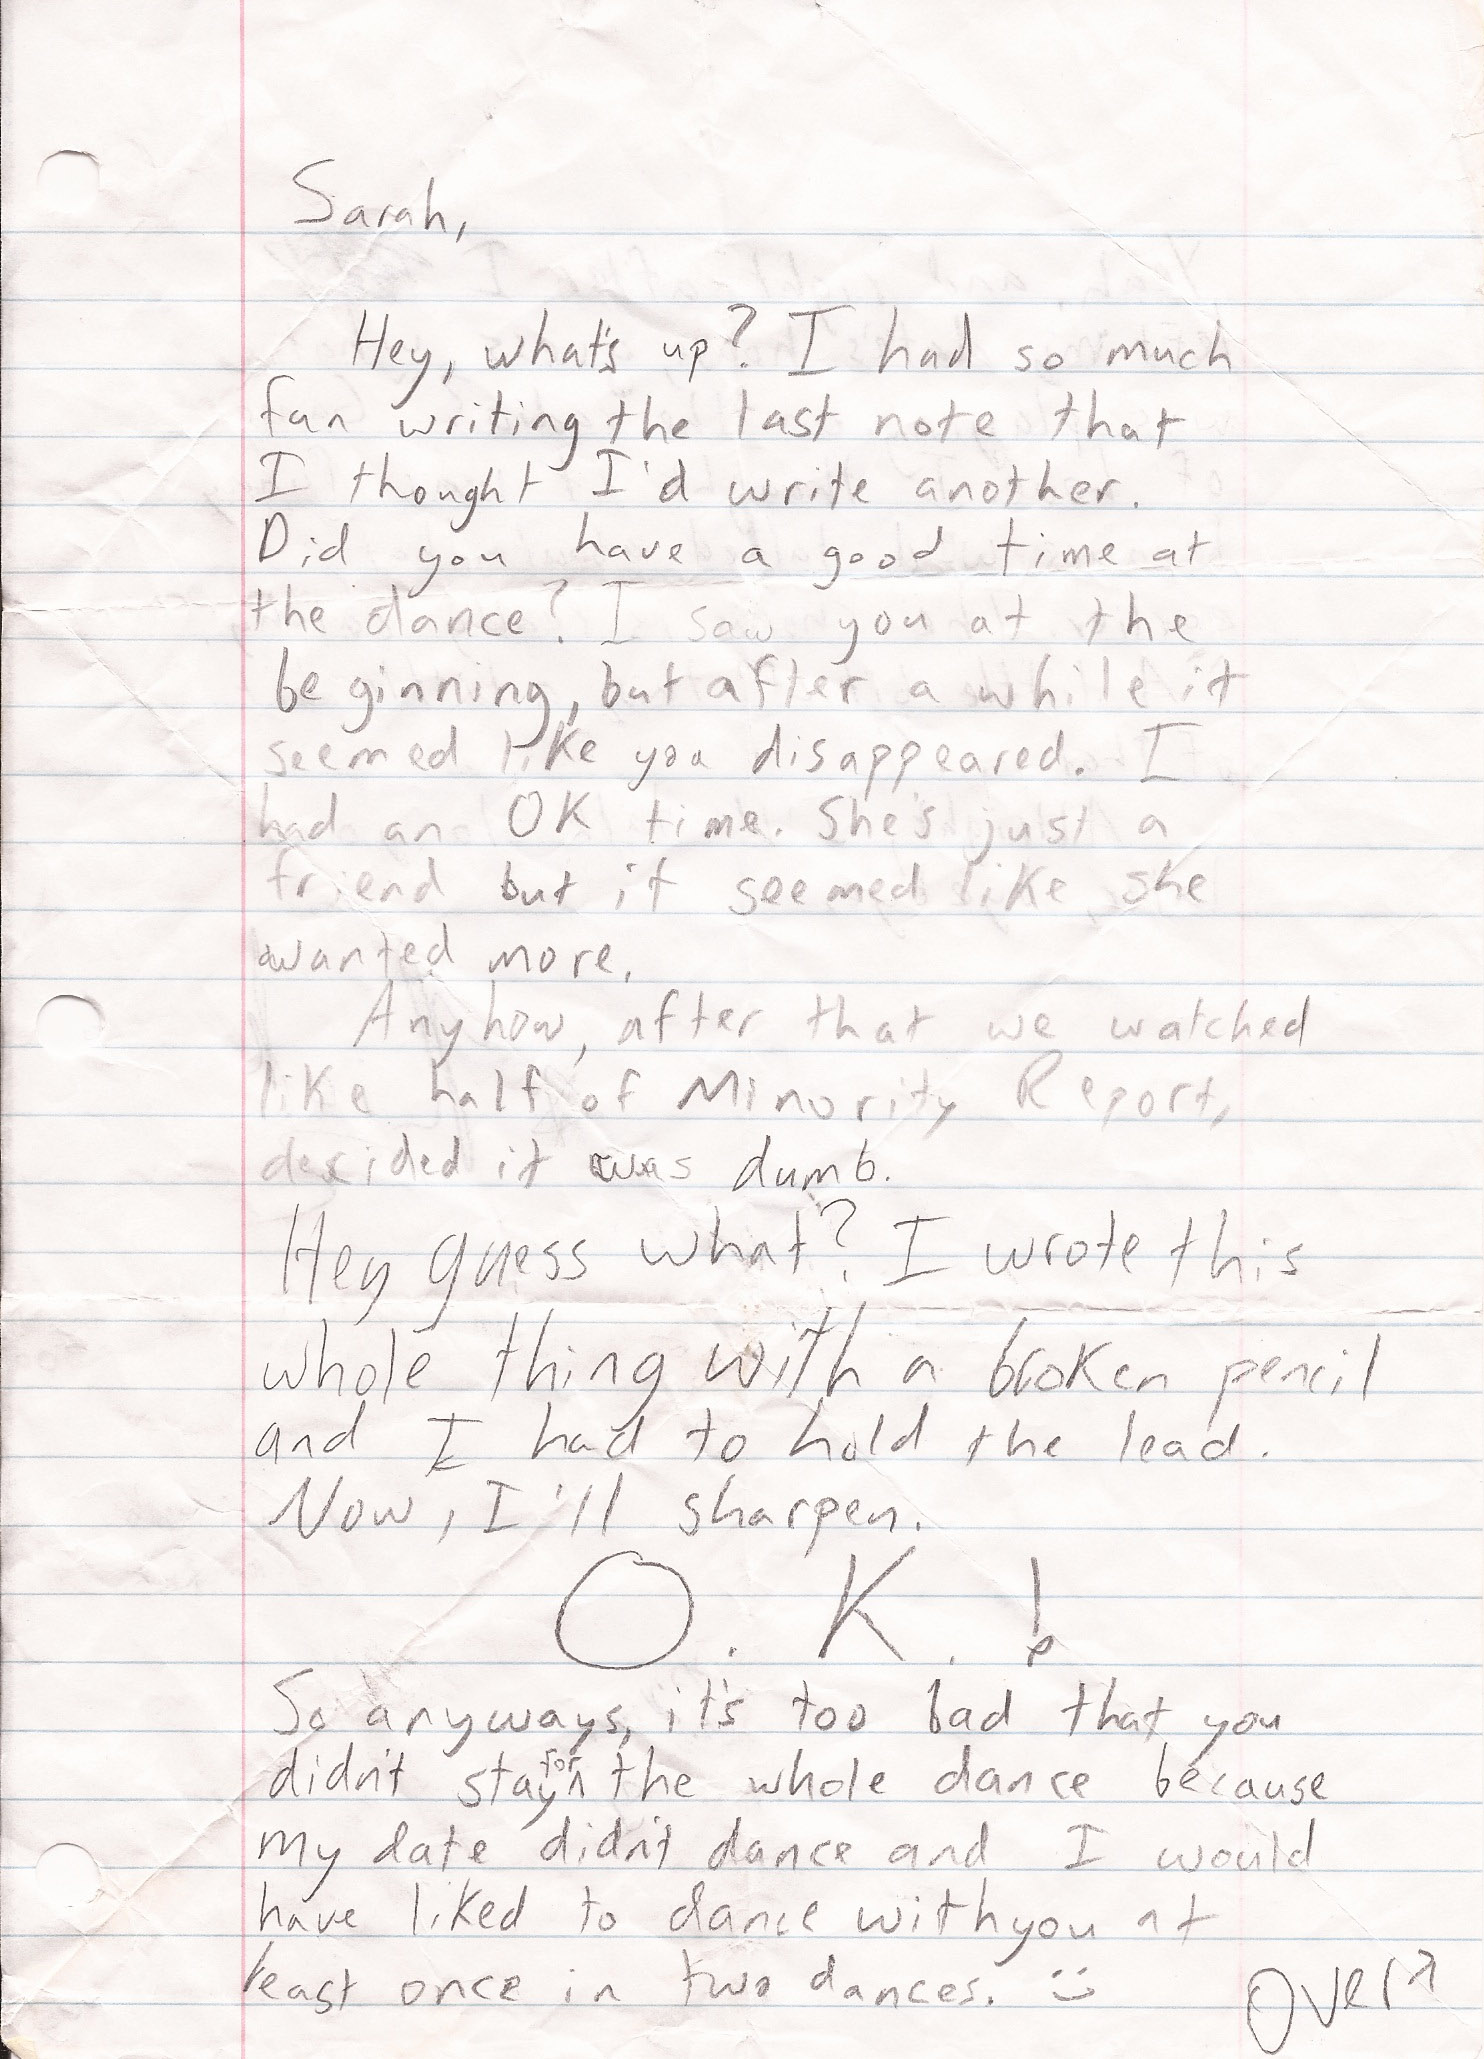 Sarah,
Hey, what's up? I had so much
fun writing the last note that
I thought I'd write another.
Did you have a good time at
the dance? I saw you at the
beginning, but after a while it
seemed like you disappeared. I
had an OK time. She's just a
friend but it seemed like she
wanted more.
Anyhow, after that we watched
like half of Minority Report,
decided it was dumb.
Hey guess what? I wrote this
whole thing with a broken pencil
and I had to hold the lead.
Now, I'll sharpen.
O.K.!
So anyways, it's too bad that you
didn't stay for the whole dance because
my date didn't dance and I would
have liked to dance with you at
least once in two dances. :)
Over